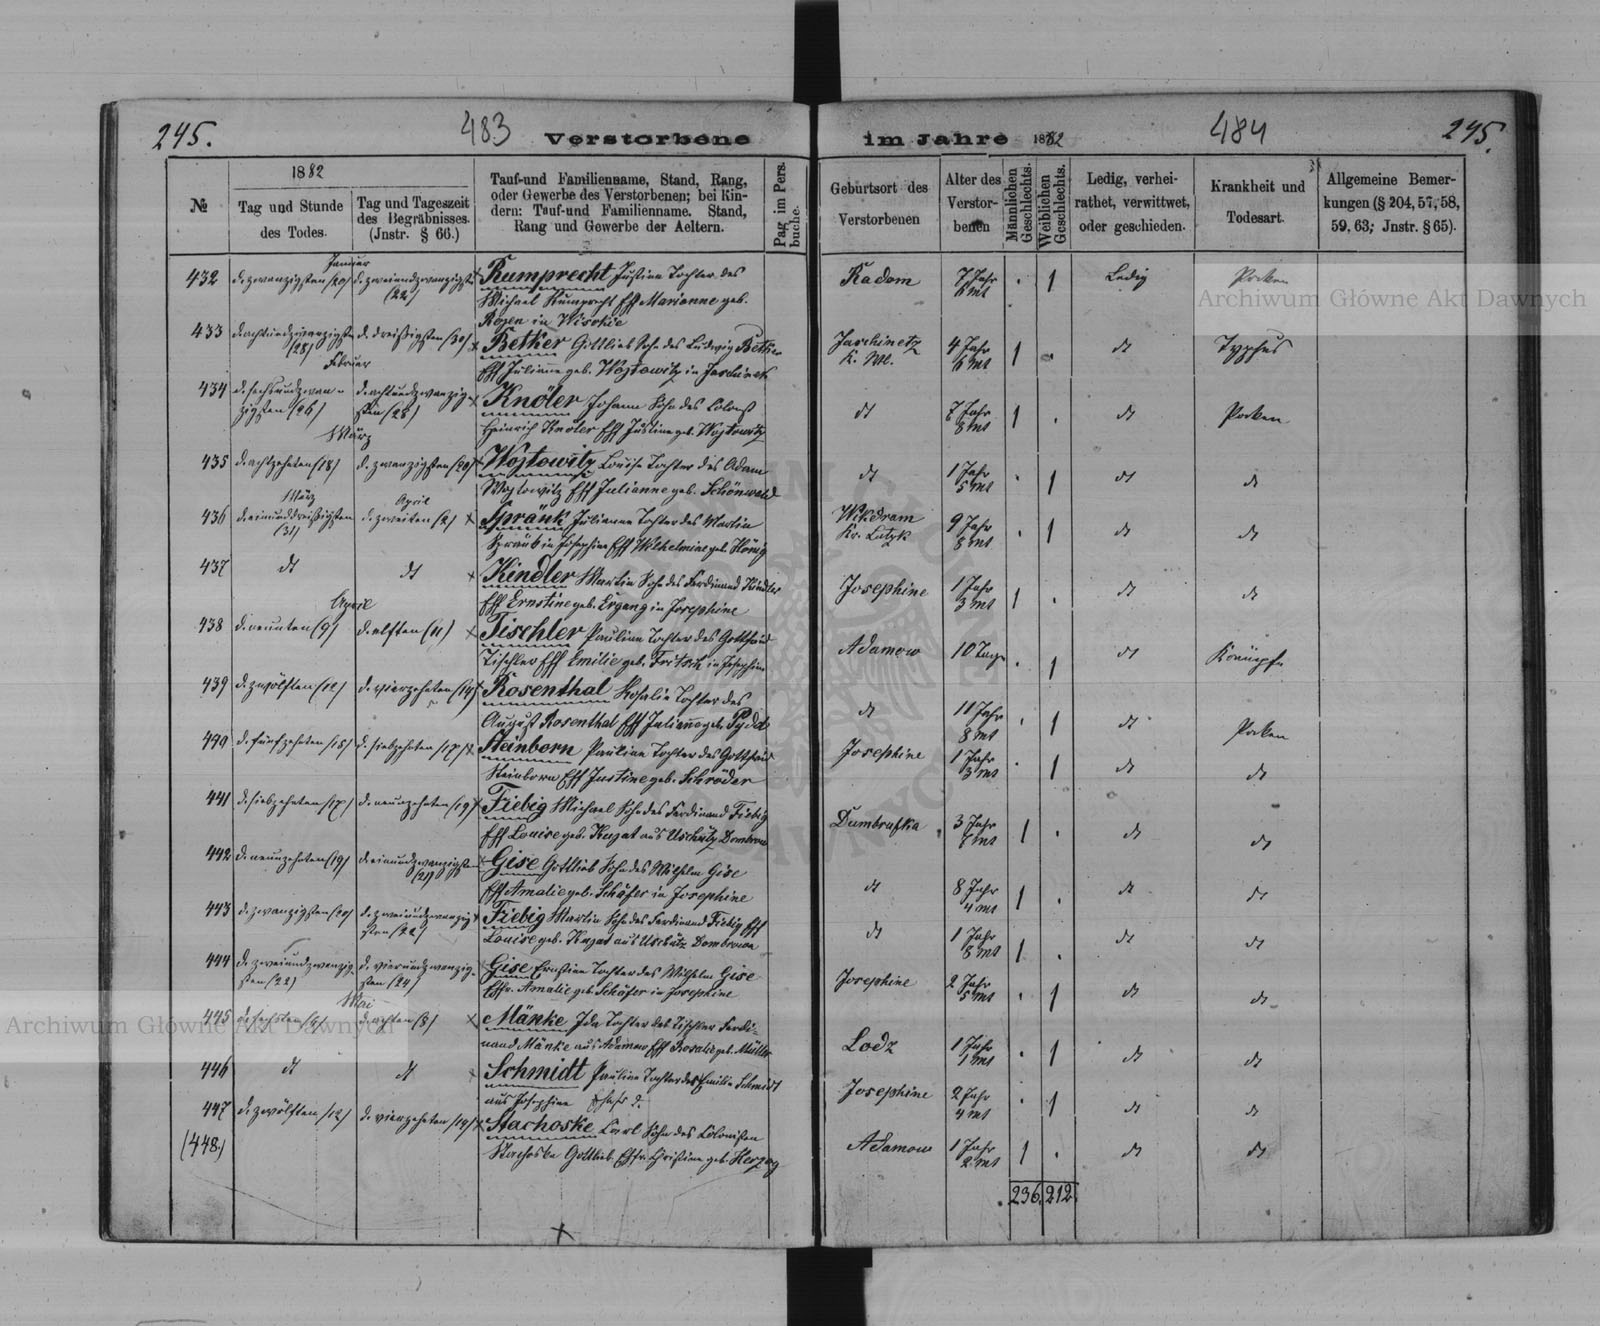 245.
483
Verstorbene
im Jahre 1882
484
245.
№
1882
Tag und Stunde
des Todes.
Tag und Tageszeit
des Begräbnisses.
(Jnstr. § 66.)
Tauf-und Familienname, Stand, Rang,
oder Gewerbe des Verstorbenen; bei Kin-
dern: Tauf-und Familienname. Stand,
Rang und Gewerbe der Aeltern.
Pag im Pers.
buche.
Geburtsort des
Verstorbenen
Alter des
Verstor-
benen
Männlichen
Geschlechts.
Weiblichen
Geschlechts.
Ledig, verhei-
rathet, verwittwet,
oder geschieden.
Krankheit und
Todesart.
Allgemeine Bemer-
kungen (§ 204, 57, 58,
59, 63; Jnstr. § 65).
Januar
432 d. zwanzigsten (20) d. zweiundzwanzigsten (22) Rumprecht Justina Tochter des
Michael Rumprecht Eff Marianne geb.
Rogen in Wisokie
Radom 7 Jahr 6 mt 1 Ledig Pocken
433 d. achtundzwanzigsten (28) d. dreißigsten (30) Betker Gottlieb Sohn des Ludwig Betker
Eff Juliane geb. Wojtowitz in Jaschinetz
Jaschinetz K. Wl. 4 Jahr 6 mt 1 dt Typhus
Februar
434 d. sechsundzwan-zigsten (26) d. achtundzwanzig-sten (28) Knöler Johann Sohn des Colonist
Heinrich Knöler Eff Justine geb. Wojtowitz
dt 7 Jahr 8 mt 1 dt Pocken
März
435 d. achtzehnten (18) d. zwanzigsten (20) Wojtowitz Louise Tochter des Adam
Wojtowitz Eff Julianne geb. Schönwald
dt 1 Jahr 5 mt 1 dt dt
März April
436 d. einunddreißigsten (31) d. zweiten (2) Spränk Julianna Tochter des Martin
in Josephine Eff Wilhelmine geb. König
Kr. Lutzk 9 Jahr 8 mt 1 dt dt
437 dt dt Kindler Martin Sohn des Ferdinand Kindler
Eff Ernstine geb. Ergang in Josephine
Josephine 1 Jahr 3 mt 1 dt dt
April
438 d. neunten (9) d. elften (11) Tischler Pauline Tochter des Gottfried
Tischler Eff Emilie geb. in Josephine
Adamow 10 Tage 1 dt Krämpfe
439 d. zwölften (12) d. vierzehnten (14) Rosenthal Rosalie Tochter des
August Rosenthal Eff Julianne geb.
dt 11 Jahr 8 mt 1 dt Pocken
440 d. fünfzehnten (15) d. siebzehnten (17) Steinborn Pauline Tochter des Gottfried
Steinborn Eff Justine geb. Schröder
Josephine 1 Jahr 3 mt 1 dt dt
441 d. siebzehnten (17) d. neunzehnten (19) Fiebig Michael Sohn des Ferdinand Fiebig
Eff Louise geb. Kuzat aus Uschütz Dombrowa
Dumbrufka 3 Jahr 8 mt 1 dt dt
442 d. neunzehnten (19) d. einundzwanzigsten (21) Gise Gottlieb Sohn des Wilhelm Gise
Eff Amalie geb. Schäfer in Josephine
dt 8 Jahr 4 mt 1 dt dt
443 d. zwanzigsten (20) d. zweiundzwanzig-sten (22) Fiebig Martin Sohn des Ferdinand Fiebig Eff
Louise geb. Kuzat aus Uschütz Dombrowa
dt 1 Jahr 8 mt 1 dt dt
444 d. zweiundzwanzig-sten (22) d. vierundzwanzig-sten (24) Gise Ernstine Tochter des Wilhelm Gise
Effr. Amalie geb Schäfer in Josephine
Josephine 2 Jahr 5 mt 1 dt dt
Mai
445 d. sechsten (6) d. achten (8) Mänke Ida Tochter des Tischler Ferdi-
nand Mänke aus Adamow Eff Rosalie geb. Müller
Lodz 1 Jahr 1 mt 1 dt dt
446 dt dt Schmidt Pauline Tochter des Emilie Schmidt
aus Josephine
Josephine 2 Jahr 4 mt 1 dt dt
447 d. zwölften (12) d. vierzehnten (14) Stachoske Carl Sohn des Colonisten
(448.) Stachoske Gottlieb Effr. Christine geb. Herzog
Adamow 1 Jahr 2 mt 1 dt dt
236. 212.
Archiwum Główne Akt Dawnych
Archiwum Główne Akt Dawnych